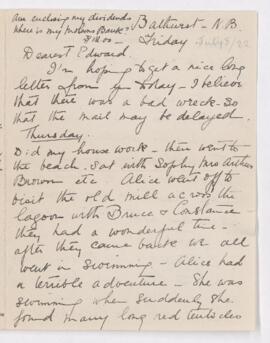 Am enclosing my dividends
where is my Molsons Bank?
$18.00 —
Bathurst — N.B.
Friday July 8/22
Dearest Edward.
I'm hoping to get a nice long
letter from you today — I believe
that there was a bad wreck — so
that the mail may be delayed.
Thursday.
Did my house work — then went to
the beach. Sat with Sophy, Mrs Arthur
Brown etc. Alice went off to
visit the old mill across the
lagoon with Bruce & Constance —
they had a wonderful time —
after they came back we all
went in swimming — Alice had
a terrible adventure — She was
swimming when suddenly she
found many long red tentacles